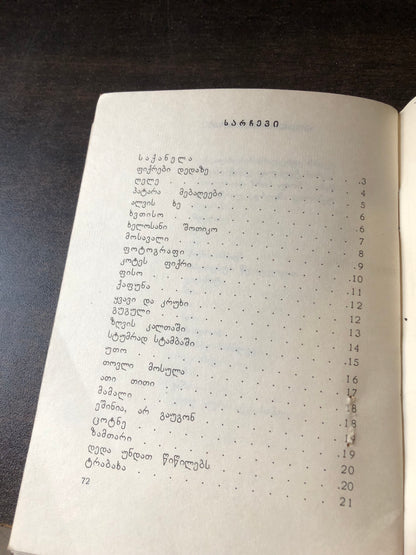 სარჩევი
საქანელა
ფიქრები დედაზე . . . . . . . . 3
ღელე . . . . . . . . 4
პატარა მებაღეები . . . . . . . . 5
ალვის ხე . . . . . . . . 6
ხვთისო . . . . . . . . 6
ხელოსანი შოთიკო . . . . . . . . 7
მოსავალი . . . . . . . . 8
ფოტოგრაფი . . . . . . . . 9
კოტეს ფიქრი . . . . . . . . 10
ფისო . . . . . . . . 11
ქაფუნა . . . . . . . . 12
ყვავი და კრუხი . . . . . . . . 12
გუგული . . . . . . . . 13
ზღვის კალთაში . . . . . . . . 14
სტუმრად სტამბაში . . . . . . . . 15
უთო . . . . . . . . 16
თოვლი მოსულა . . . . . . . . 17
ათი თითი . . . . . . . . 18
მამალი . . . . . . . . 18
ეშინია, არ გაუგონ . . . . . . . . 19
ცოტნე . . . . . . . . 19
ზამთარი . . . . . . . . 20
დედა უნდათ წიწილებს . . . . . . . . 20
ტრაბახა . . . . . . . . 21
72